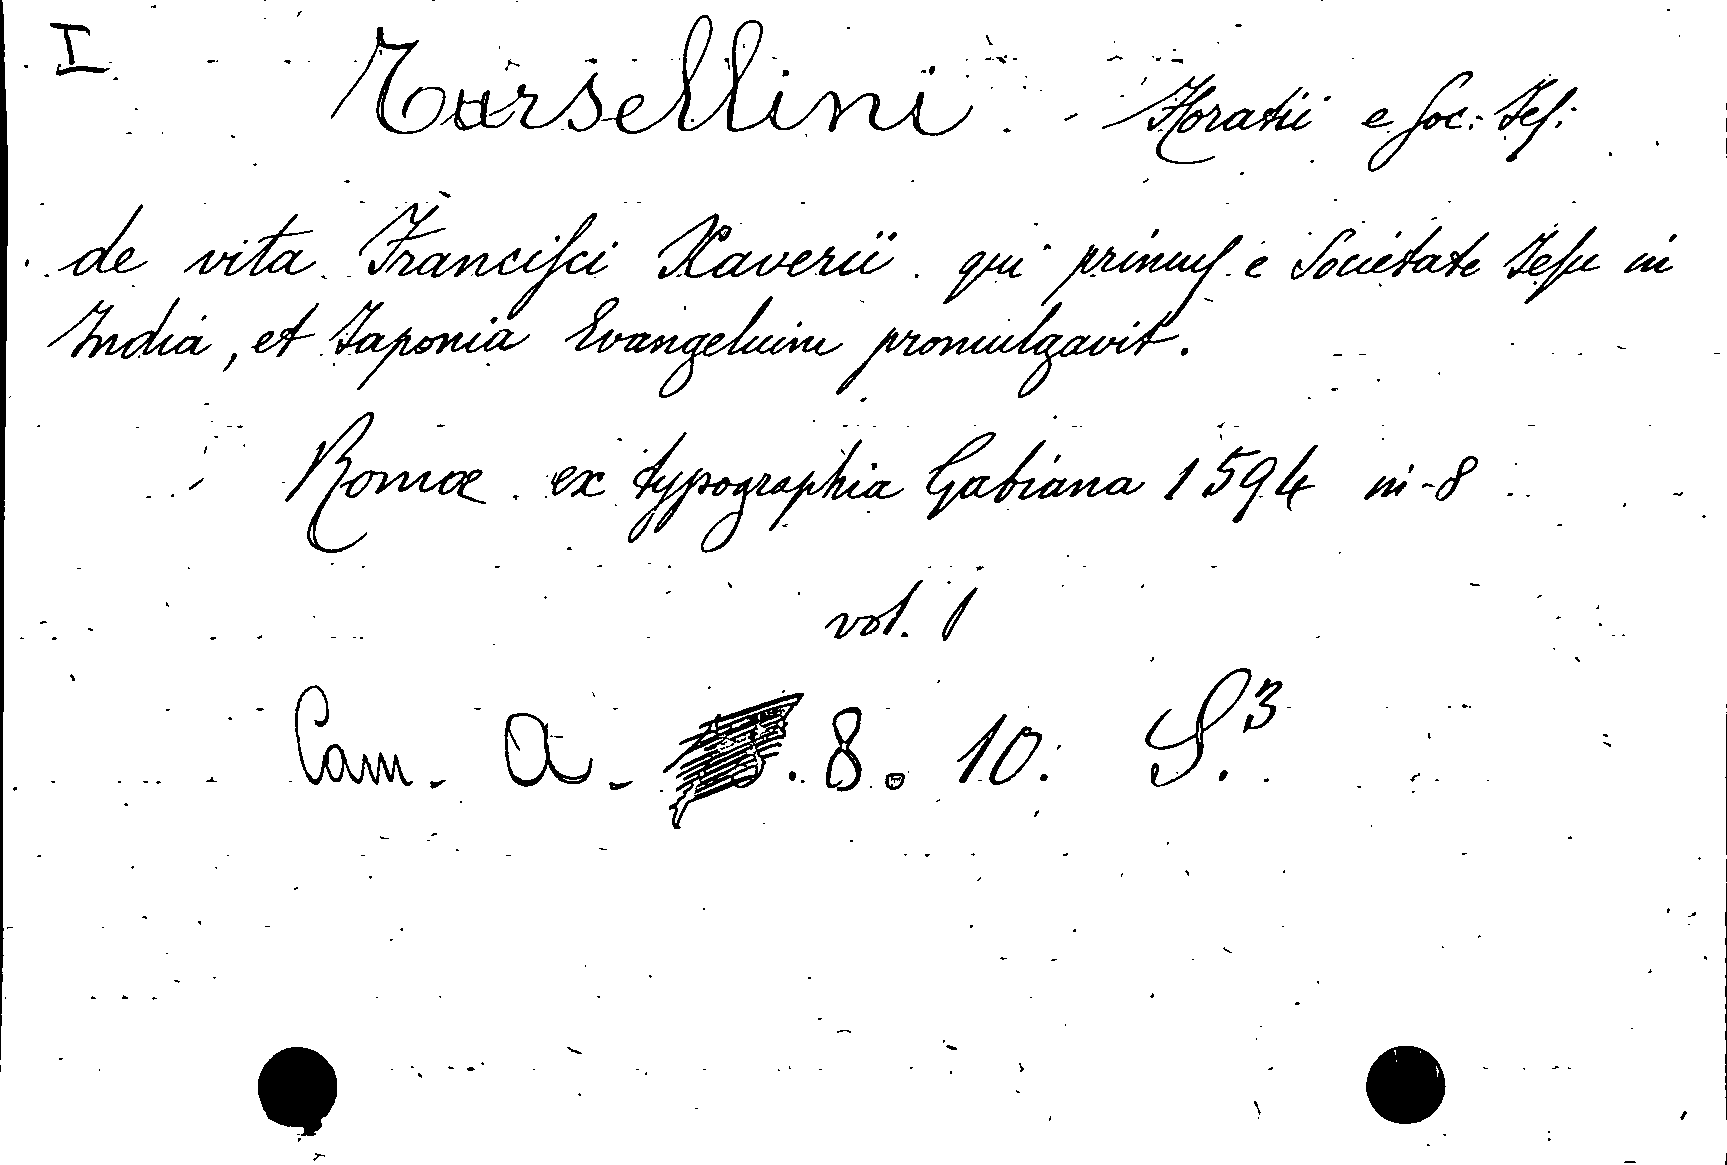 I
Tursellini - Horatii e Soc: Jes:
de vita Francisci Xaverii qui primus e Societate Jesu in
India, et Japonia Evangelium promulgavit.
Romæ ex typographia Gabiana 1594 in-8
vol. 1
Cam. A. . 8. 10. S.³